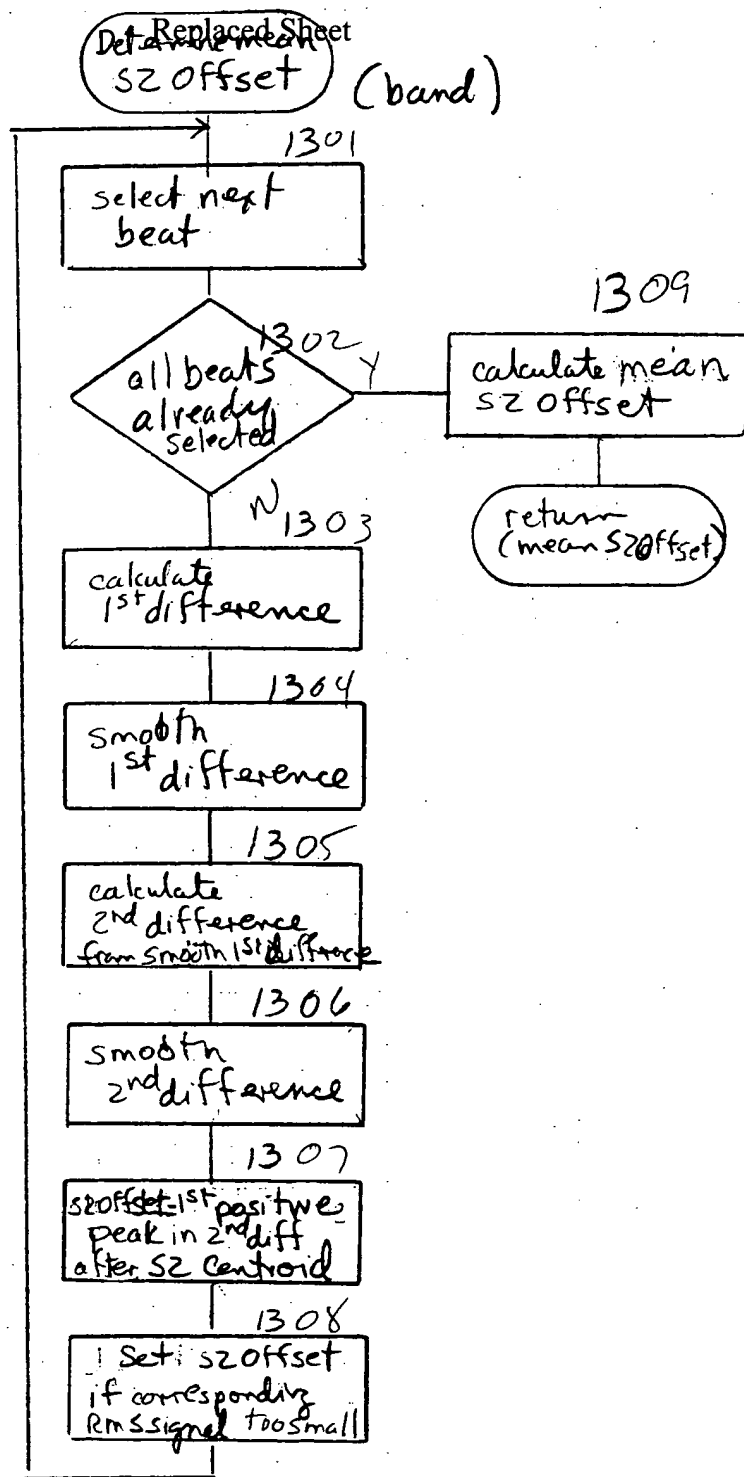 Replaced Sheet
Determine mean
S2 Offset
(band)
1301
select next
beat
1302
all beats
already
selected
Y
N
1309
calculate mean
S2 Offset
return
(mean S2Offset)
1303
calculate
1st difference
1304
smooth
1st difference
1305
calculate
2nd difference
from smooth 1st difference
1306
smooth
2nd difference
1307
S2 offset=1st positive
peak in 2nd diff
after S2 Centroid
1308
Set S2Offset
if corresponding
RMS signal too small